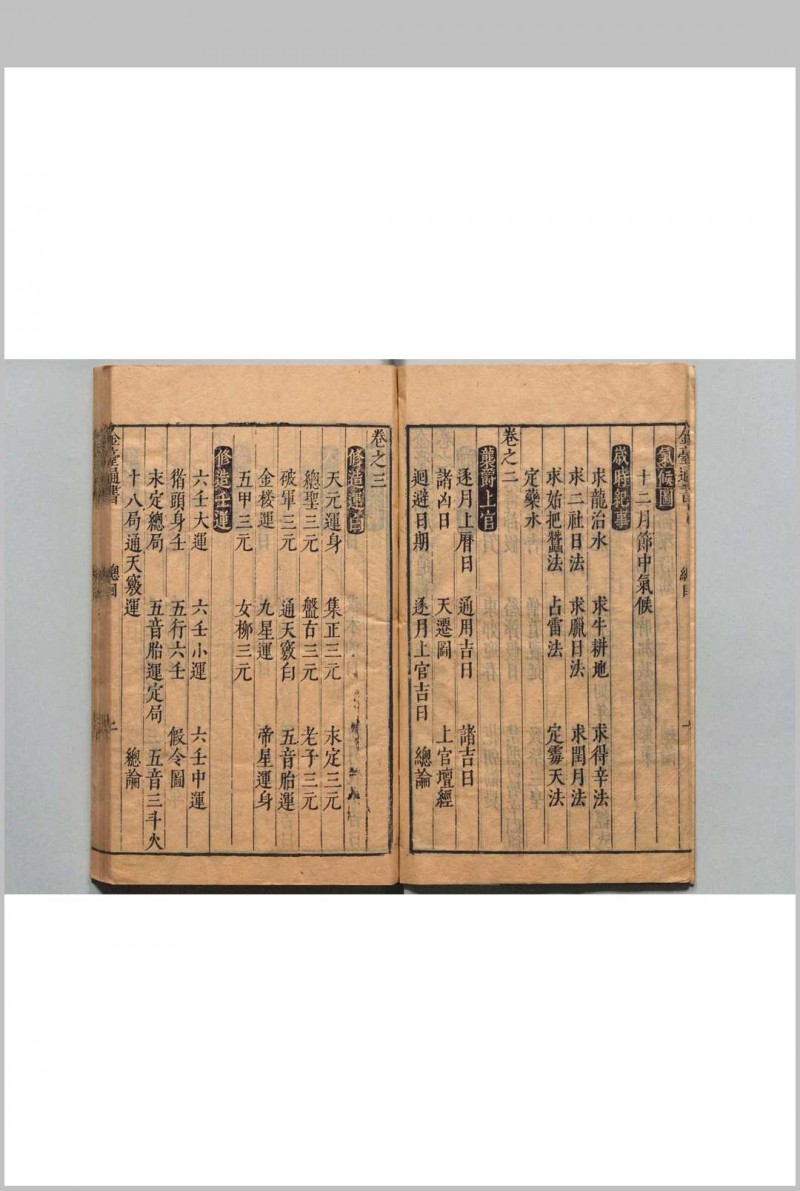 氣候圖
十二月節中氣候
歲時紀事
求龍治水 求牛耕地 求得辛法
求二社日法 求臘日法 求閏月法
求始把蠶法 占雷法 定霧天法
定藥水
卷之二
襲爵上官
逐月上曆日 通用吉日 諸吉日
諸凶日 天遷圖 上官壇經
迴避日期 逐月上官吉日 總論
卷之三
修造運白
天元運身 集正三元 末定三元
總聖三元 盤古三元 老子三元
破軍三元 通天竅白 五音胎運
金楼運 九星運 帝星運身
五甲三元 女柳三元
修造壬運
六壬大運 六壬小運 六壬中運
猪頭身壬 五行六壬 假令圖
末定總局 五音胎運定局 五音三斗火
十八局通天竅運 總論
臺通書 總目 二